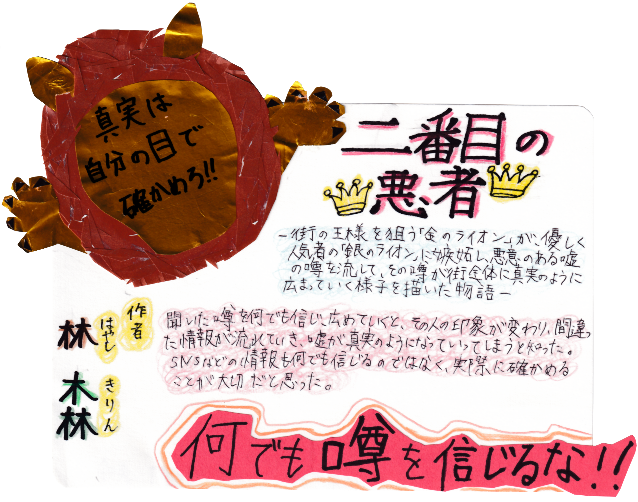 真実は
自分の目で
確かめろ!!
二番目の
悪者
-街の王様を狙う「金のライオン」が、優しく
人気者の「銀のライオン」に嫉妬し、悪意のある嘘
の噂を流して、その噂が街全体に真実のように
広まっていく様子を描いた物語-
作者
林
はやし
木林
きりん
聞いた噂を何でも信じ、広めていくと、その人の印象が変わり、間違っ
た情報が流れていき、嘘が真実のようになっていってしまうと知った。
SNSなどの情報も何でも信じるのではなく、実際に確かめる
ことが大切だと思った。
何でも噂を信じるな!!